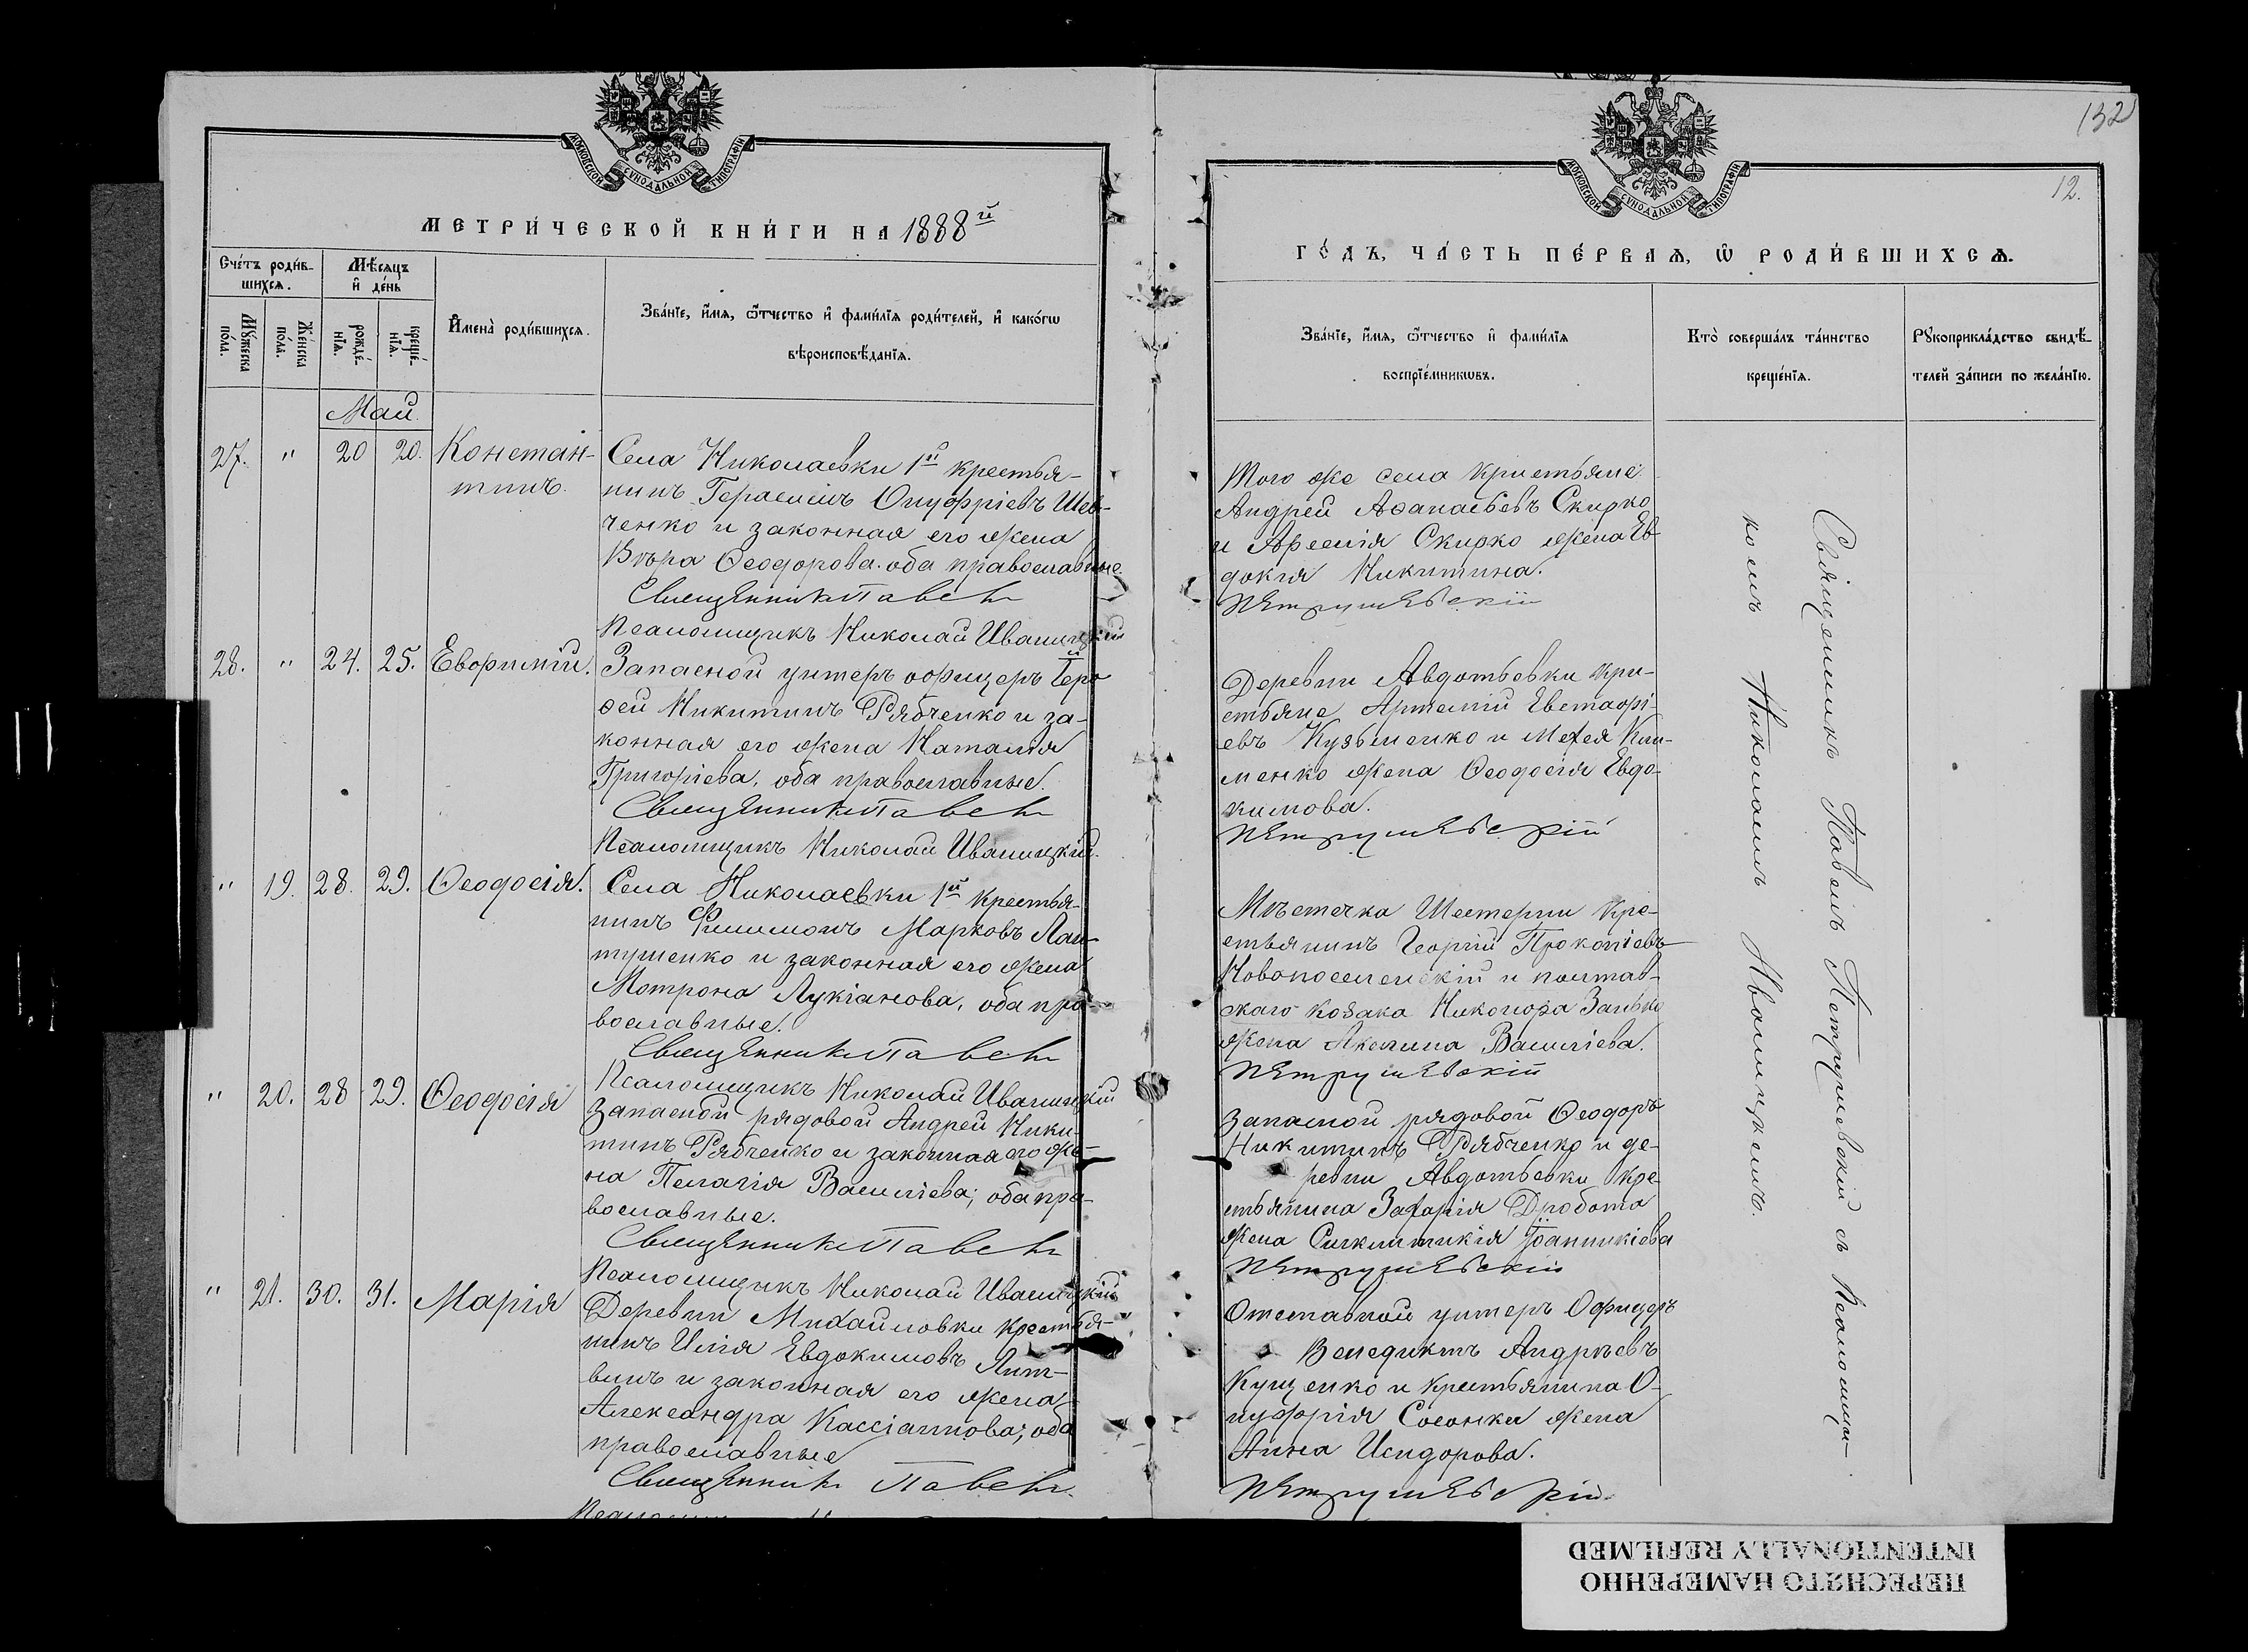 132
12.
МОСКОВСКОЙ СѴНОДАЛЬНОЙ ТИПОГРАФІИ
МЕТРИ́ЧЕСКОЙ КНИ́ГИ НА 1888й
Сче́тъ роди́в-
шихсѧ.
Мѣ́сѧцъ
и҆ де́нь
Мꙋ́жеска
по́ла.
Же́нска
по́ла.
рожде́-
нїѧ.
креще́-
нїѧ.
И҆мена̀ роди́вшихсѧ.
Зва́нїе, и҆́мѧ, ѻ҆́тчество и҆ фами́лїѧ роди́телей, и҆ како́гѡ
вѣроисповѣ́данїѧ.
Май
27. " 20 20. Констан-
тинъ.
Села Николаевки 1й крестья-
нинъ Герасимъ Онуфріевъ Шев-
ченко и законная его жена
Вѣра Ѳеодорова. оба православные.
Священникъ Павелъ
Псаломщикъ Николай Иваницкій
28. " 24. 25. Евфимій.
Запасной унтеръ офицеръ Іеро-
ѳей Никитинъ Рябченко и за-
конная его жена Наталія
Григоріева, оба православные.
Священникъ Павелъ
Псаломщикъ Николай Иваницкій.
" 19. 28. 29. Ѳеодосія.
Села Николаевки 1й крестья-
нинъ Филимонъ Марковъ Лан-
тушенко и законная его жена
Мотрона Лукіанова, оба пра-
вославные.
Священникъ Павелъ
Псаломщикъ Николай Иваницкій
" 20. 28 29. Ѳеодосія
Запасной рядовой Андрей Ники-
тинъ Рябченко и законная его же-
на Пелагія Василіева; оба пра-
вославные.
Священникъ Павелъ
Псаломщикъ Николай Иваницкій
" 21. 30. 31. Марія
Деревни Михайловки крестья-
нинъ Илія Евдокимовъ Лит-
винъ и законная его жена
Александра Кассіанова; оба
православные
Священникъ Павелъ
МОСКОВСКОЙ СѴНОДАЛЬНОЙ ТИПОГРАФІИ
ГО́ДЪ, ЧА́СТЬ ПЕ́РВАѦ, Ѡ҆ РОДИ́ВШИХСѦ.
Зва́нїе, и҆́мѧ, ѻ҆́тчество и҆ фами́лїѧ
воспрїе́мникѡвъ.
Кто̀ соверша́лъ та́инство
креще́нїѧ.
Рꙋкоприкла́дство свидѣ́-
телей за́писи по жела́нїю.
Того же села крестьяне
Андрей Аѳанасьевъ Скирко
и Арсенія Скирко жена Ев-
докія Никитина.
Петрушевскій
Деревни Авдотьевки кре-
стьяне Артемій Евстафі-
евъ Кузьменко и Мокея Кли-
менко жена Ѳеодосія Евдо-
кимова.
Петрушевскій
Мѣстечка Шестерни кре-
стьянинъ Георгій Прокопіевъ
Новоселенскій и полтав-
скаго козака Никонора Заи
жена Акилина Василіева.
Петрушевскій
Запасной рядовой Ѳеодоръ
Никитинъ Рябченко и де-
ревни Авдотьевки кре-
стьянина Захарія Дробота
жена Синклитикія Іоанникіева
Петрушевскій
Отставной унтеръ Офицеръ
Венедиктъ Андреевъ
Кущенко и крестьянина О-
нуфрія Сосонки жена
Анна Исидорова.
Петрушевскій
Священникъ Павелъ Петрушевскій съ Псаломщи-
комъ Николаемъ Иваницкимъ.
ПЕРЕСНЯТО НАМЕРЕННО
INTENTIONALLY REFILMED